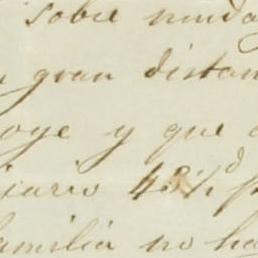 sobre muda
gran distan
oye y que
iario
familia no ha